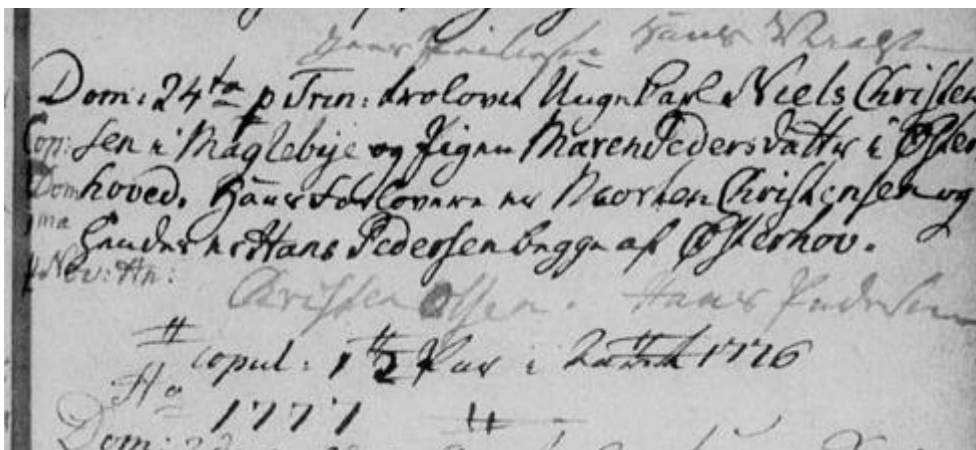 Dom: 24ta p Trin: trolovet Unge Karl Niels Christen
Cop: sen i Maglebye og Pigen Maren Pedersdatter i Øster
Dom hoved. Hans forlovere er Morten Christensen og
1ma Hendes er Hans Pedersen begge af Østerhov.
p Nev: An:
Christen Olsen. Hans Pedersen
copul: 12 Par i 1776
Ao
1777
Dom: